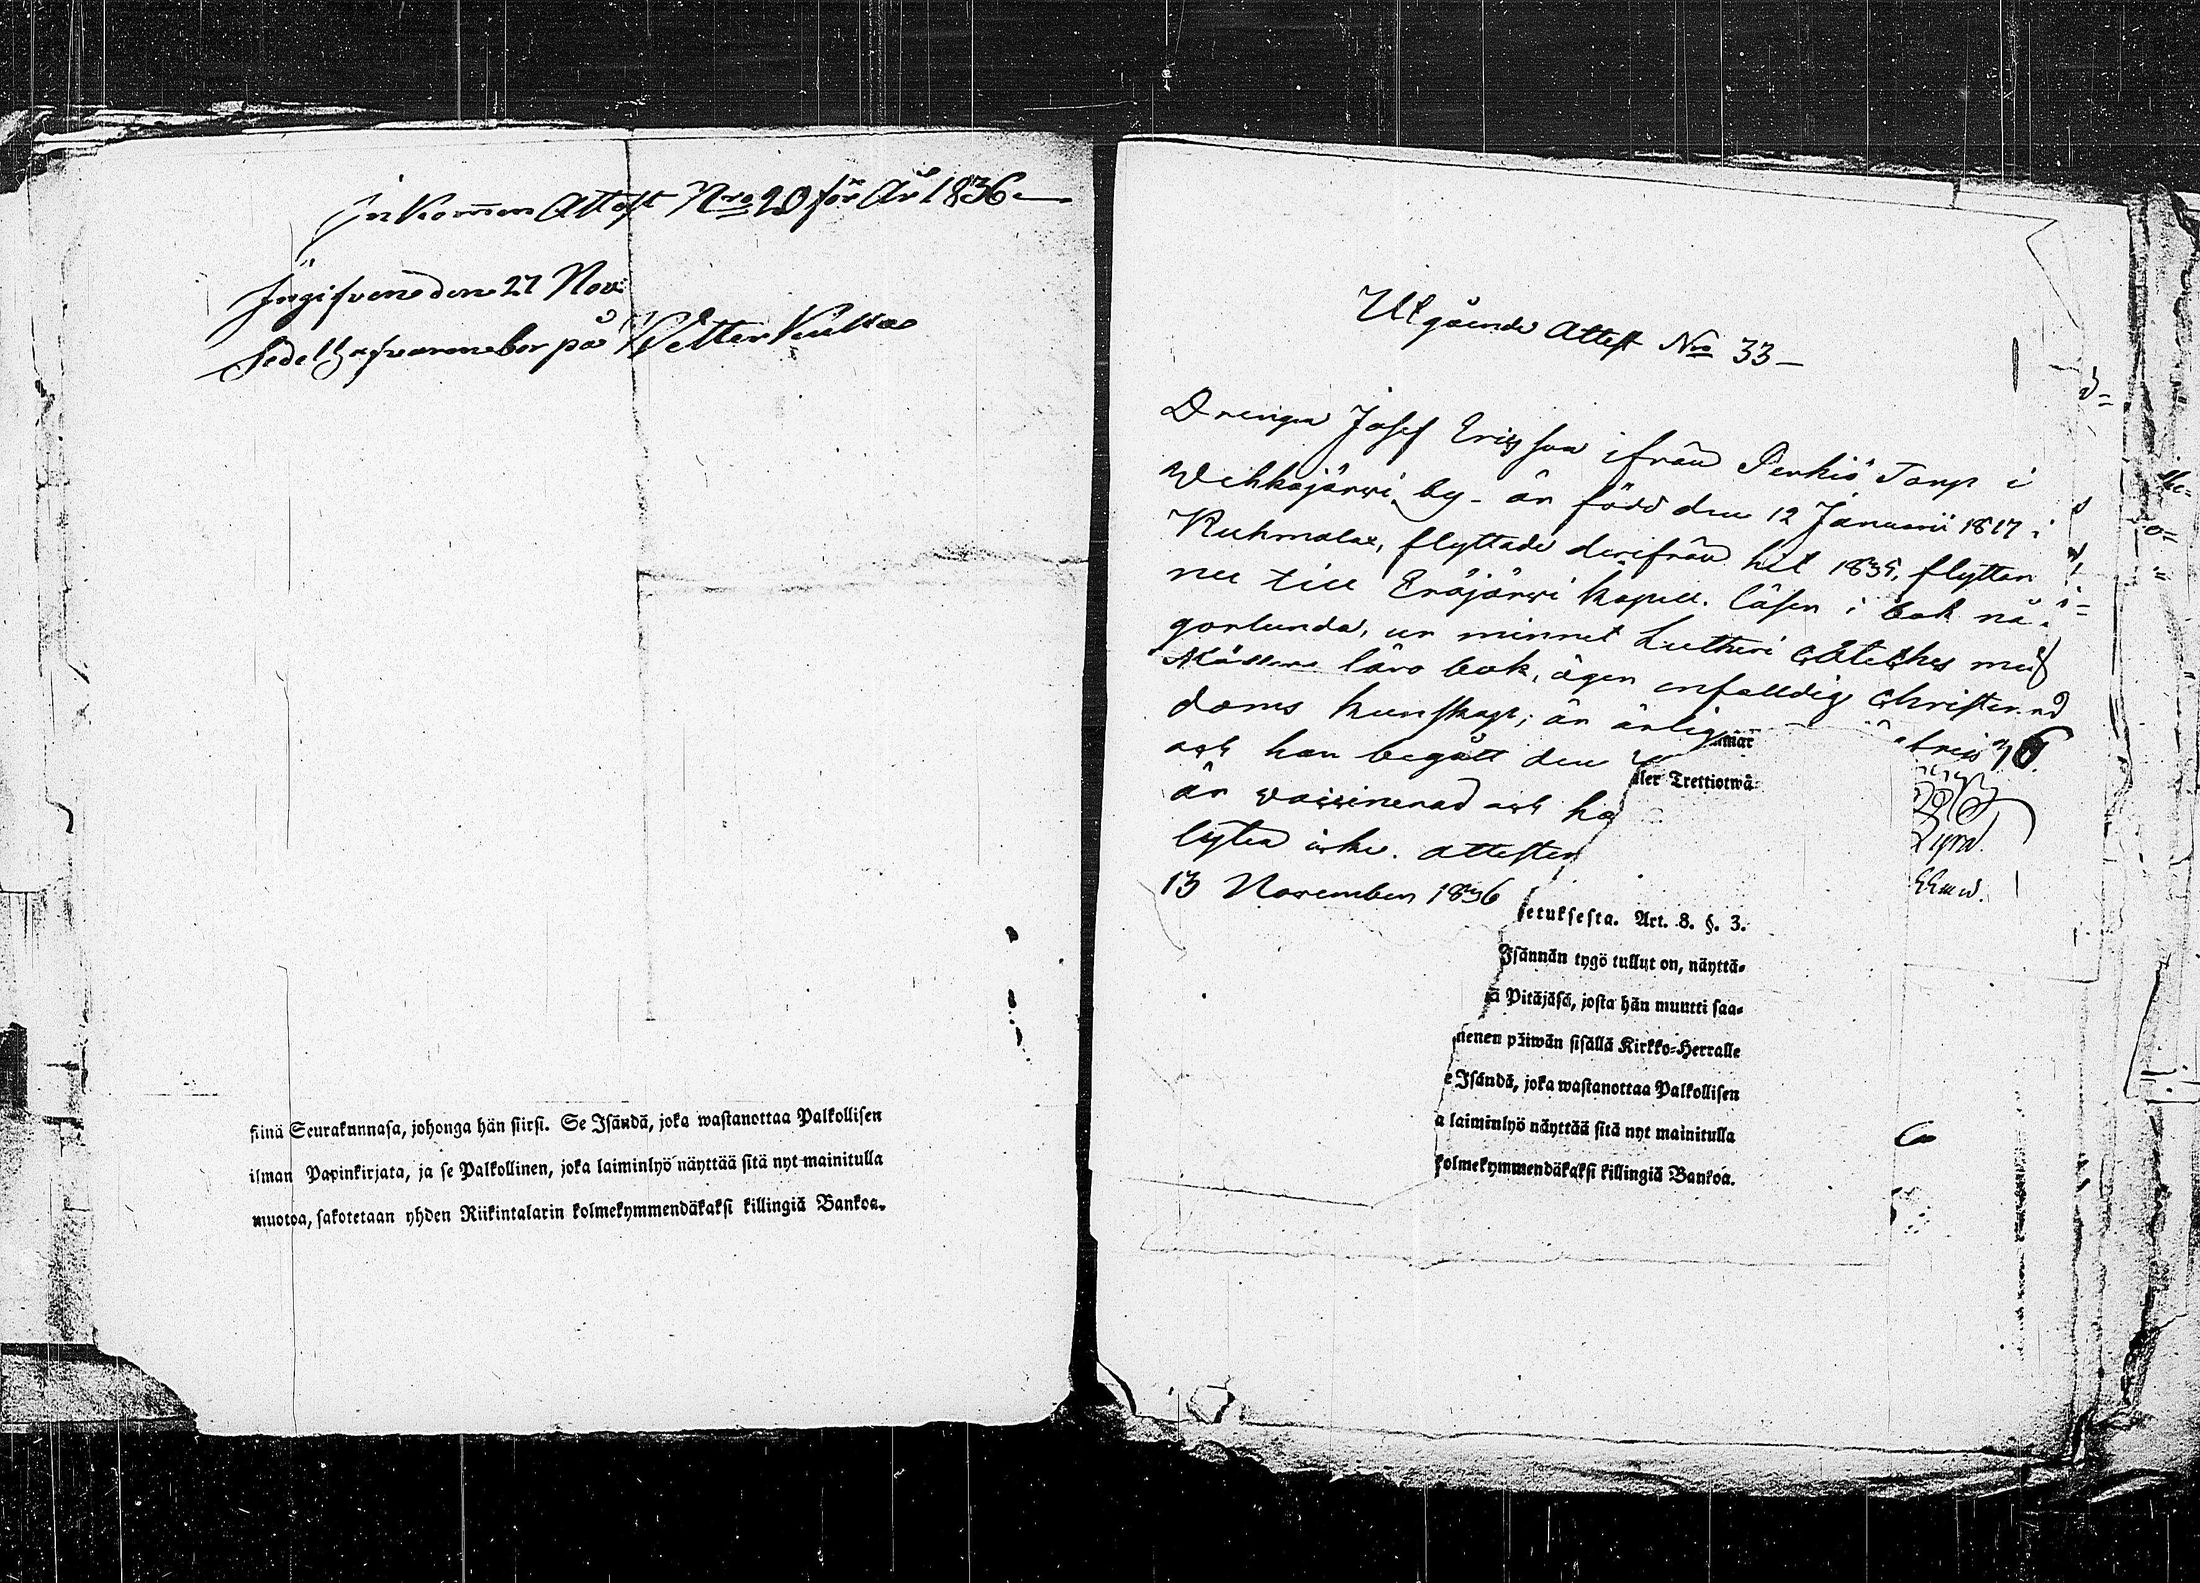 Inkommen Attest Nro 20 för År 1836
Ingifven den 27 Nov
bor på
siinä Seurakunnasa, johonga hän siirsi. Se Isändä, joka wastanottaa Palkollisen
ilman Papinkirjata, ja se Palkollinen, joka laiminlyö näyttää sitä nyt mainitulla
muotoa, sakotetaan yhden Riikintalarin kolmekymmendäkaksi killingiä Bankoa.
Utgående Attest Nro 33
Drengen Josef Ericsson ifrån Perkiö Torp i
Wehkajärwi by - är född den 12 Januarii 1817 i
Kuhmalax, flyttade derifrån hit 1835, flyttar
nu till Eräjärwi kapell. läser i bok nå-
gorlunda, ur minnet Lutheri Cateches med
läro bok, äger enfalldig Christen-
doms kunskap; är ärlig
och har begått den
är vaccinerad och ha
lyten icke. attester
13 November 1836
aler Trettiotwå
setuksesta. Art. 8. §. 3.
Isännän tygö tullut on, näyttä-
ä Pitäjäsä, josta hän muutti saa-
nenen päiwän sisällä Kirkko-Herralle
e Isändä, joka wastanottaa Palkollisen
a laiminlyö näyttää sitä nyt mainitulla
kolmekymmendäkaksi killingiä Bankoa.